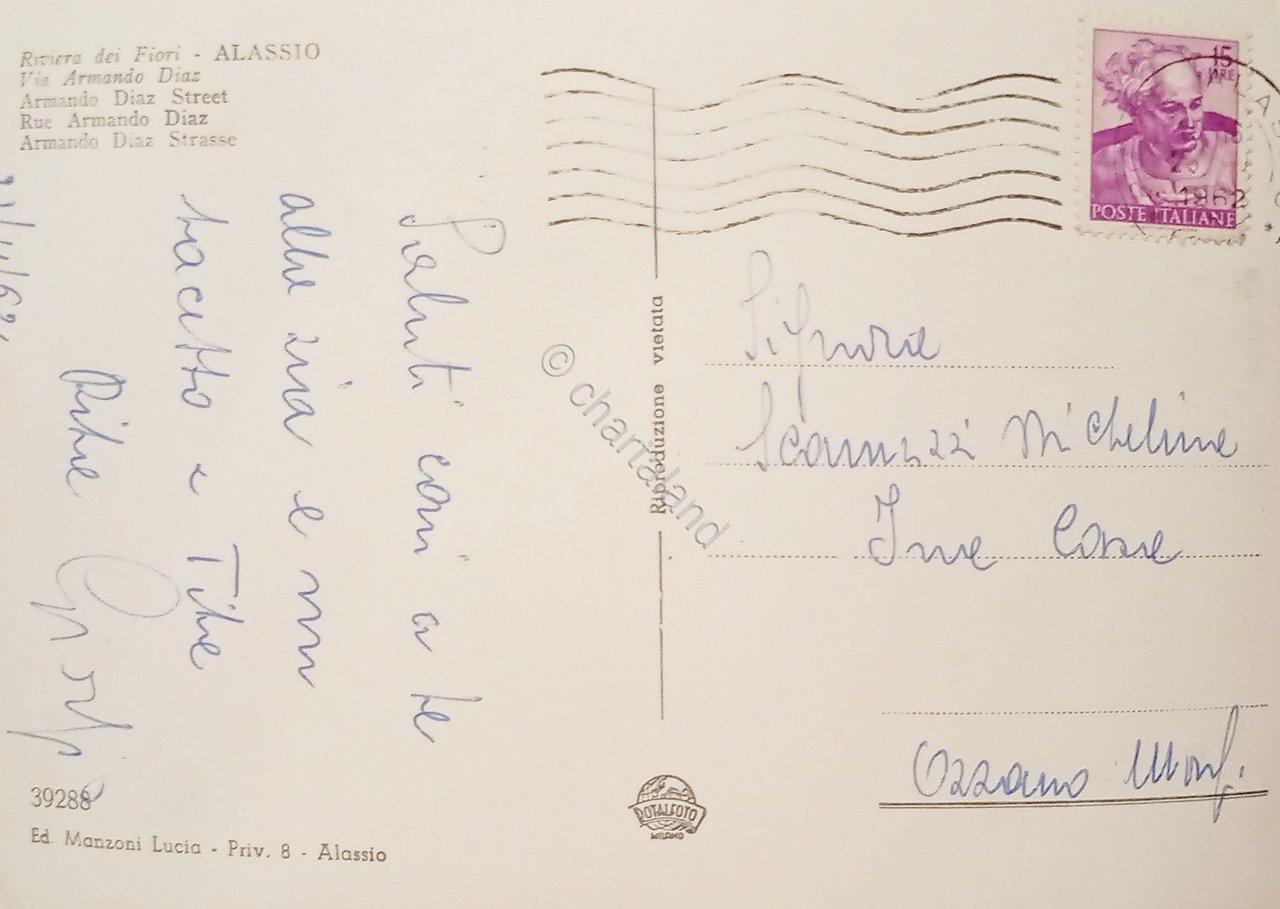 Riviera dei Fiori - ALASSIO
Via Armando Diaz
Armando Diaz Street
Rue Armando Diaz
Armando Diaz Strasse
Saluti cari a te
alla zia e un
bacetto a Tita
Rita
Giorgio
39288
Ed. Manzoni Lucia - Priv. 8 - Alassio
Riproduzione vietata
ROTALFOTO
MILANO
© chartaland
15
LIRE
1962
POSTE ITALIANE
Signora
Scamuzzi Michelina
Casa
Ozzano Monf.